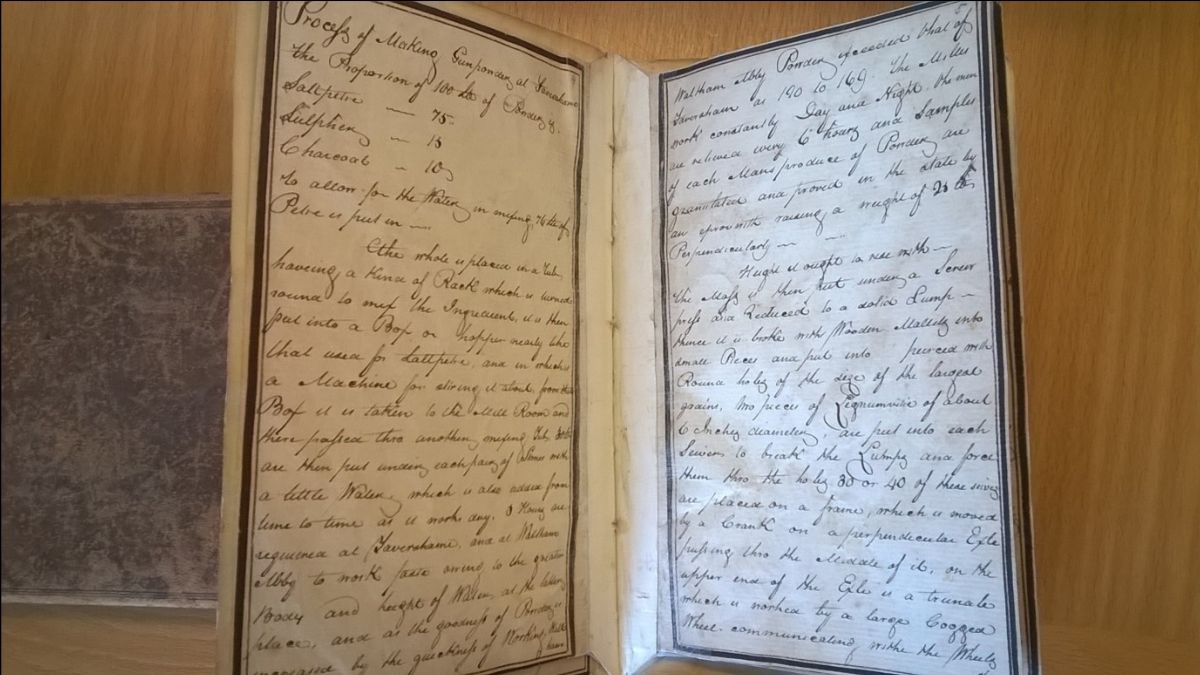 Process of Making Gunpowder at Faversham
the Proportion of 100 lb of Powder is.
Saltpetre — 75
Sulpher — 15
Charcoal — 10
to allow for the Water in mixing 76 lb of
Petre is put in —
The whole is placed in a Tub
haveing a Kind of Rack which is turned
round to mix the Ingredient, it is then
put into a Box or hopper nearly like
that used for Saltpetre, and in which is
a Machine for stiring it about, from this
Box it is taken to the Mill Room and
there passed thro another mixing Tub
are then put under each pair of Stones with
a little Water, which is also added from
time to time as it works dry. Hours are
required at Faversham, and at Waltham
Abby to work faste owing to the greater
Body and height of Water at the latter
place, and as the goodness of Powder is
increased by the quickness of Working,
5
Waltham Abby Powder exceeded that of
Faversham as 190 to 169. The Mills
work constantly Day and Night, the men
are relieved every 6 hours and Samples
of each Mans produce of Powder are
granulated and proved in the state by
an eprovith raising a weight of lb
Perpendicularly —
Height it ought to rise with —
The Mass is then put under a Screw
press and Reduced to a solid Lump —
thence it is broke with Wooden Mallets into
small Pieces and put into pierced with
Round holes of the size of the largest
grains, two pieces of Lignumvitie of about
6 Inches diameter, are put into each
Seivers to break the Lumps and force
them thro the holes 30 or 40 of these sives
are placed on a frame, which is moved
by a Crank on a perpendicular Exle
passing thro the Middle of it, on the
upper end of the Exle is a trundle
which is worked by a large Cogged
Wheel communicating with the Wheels